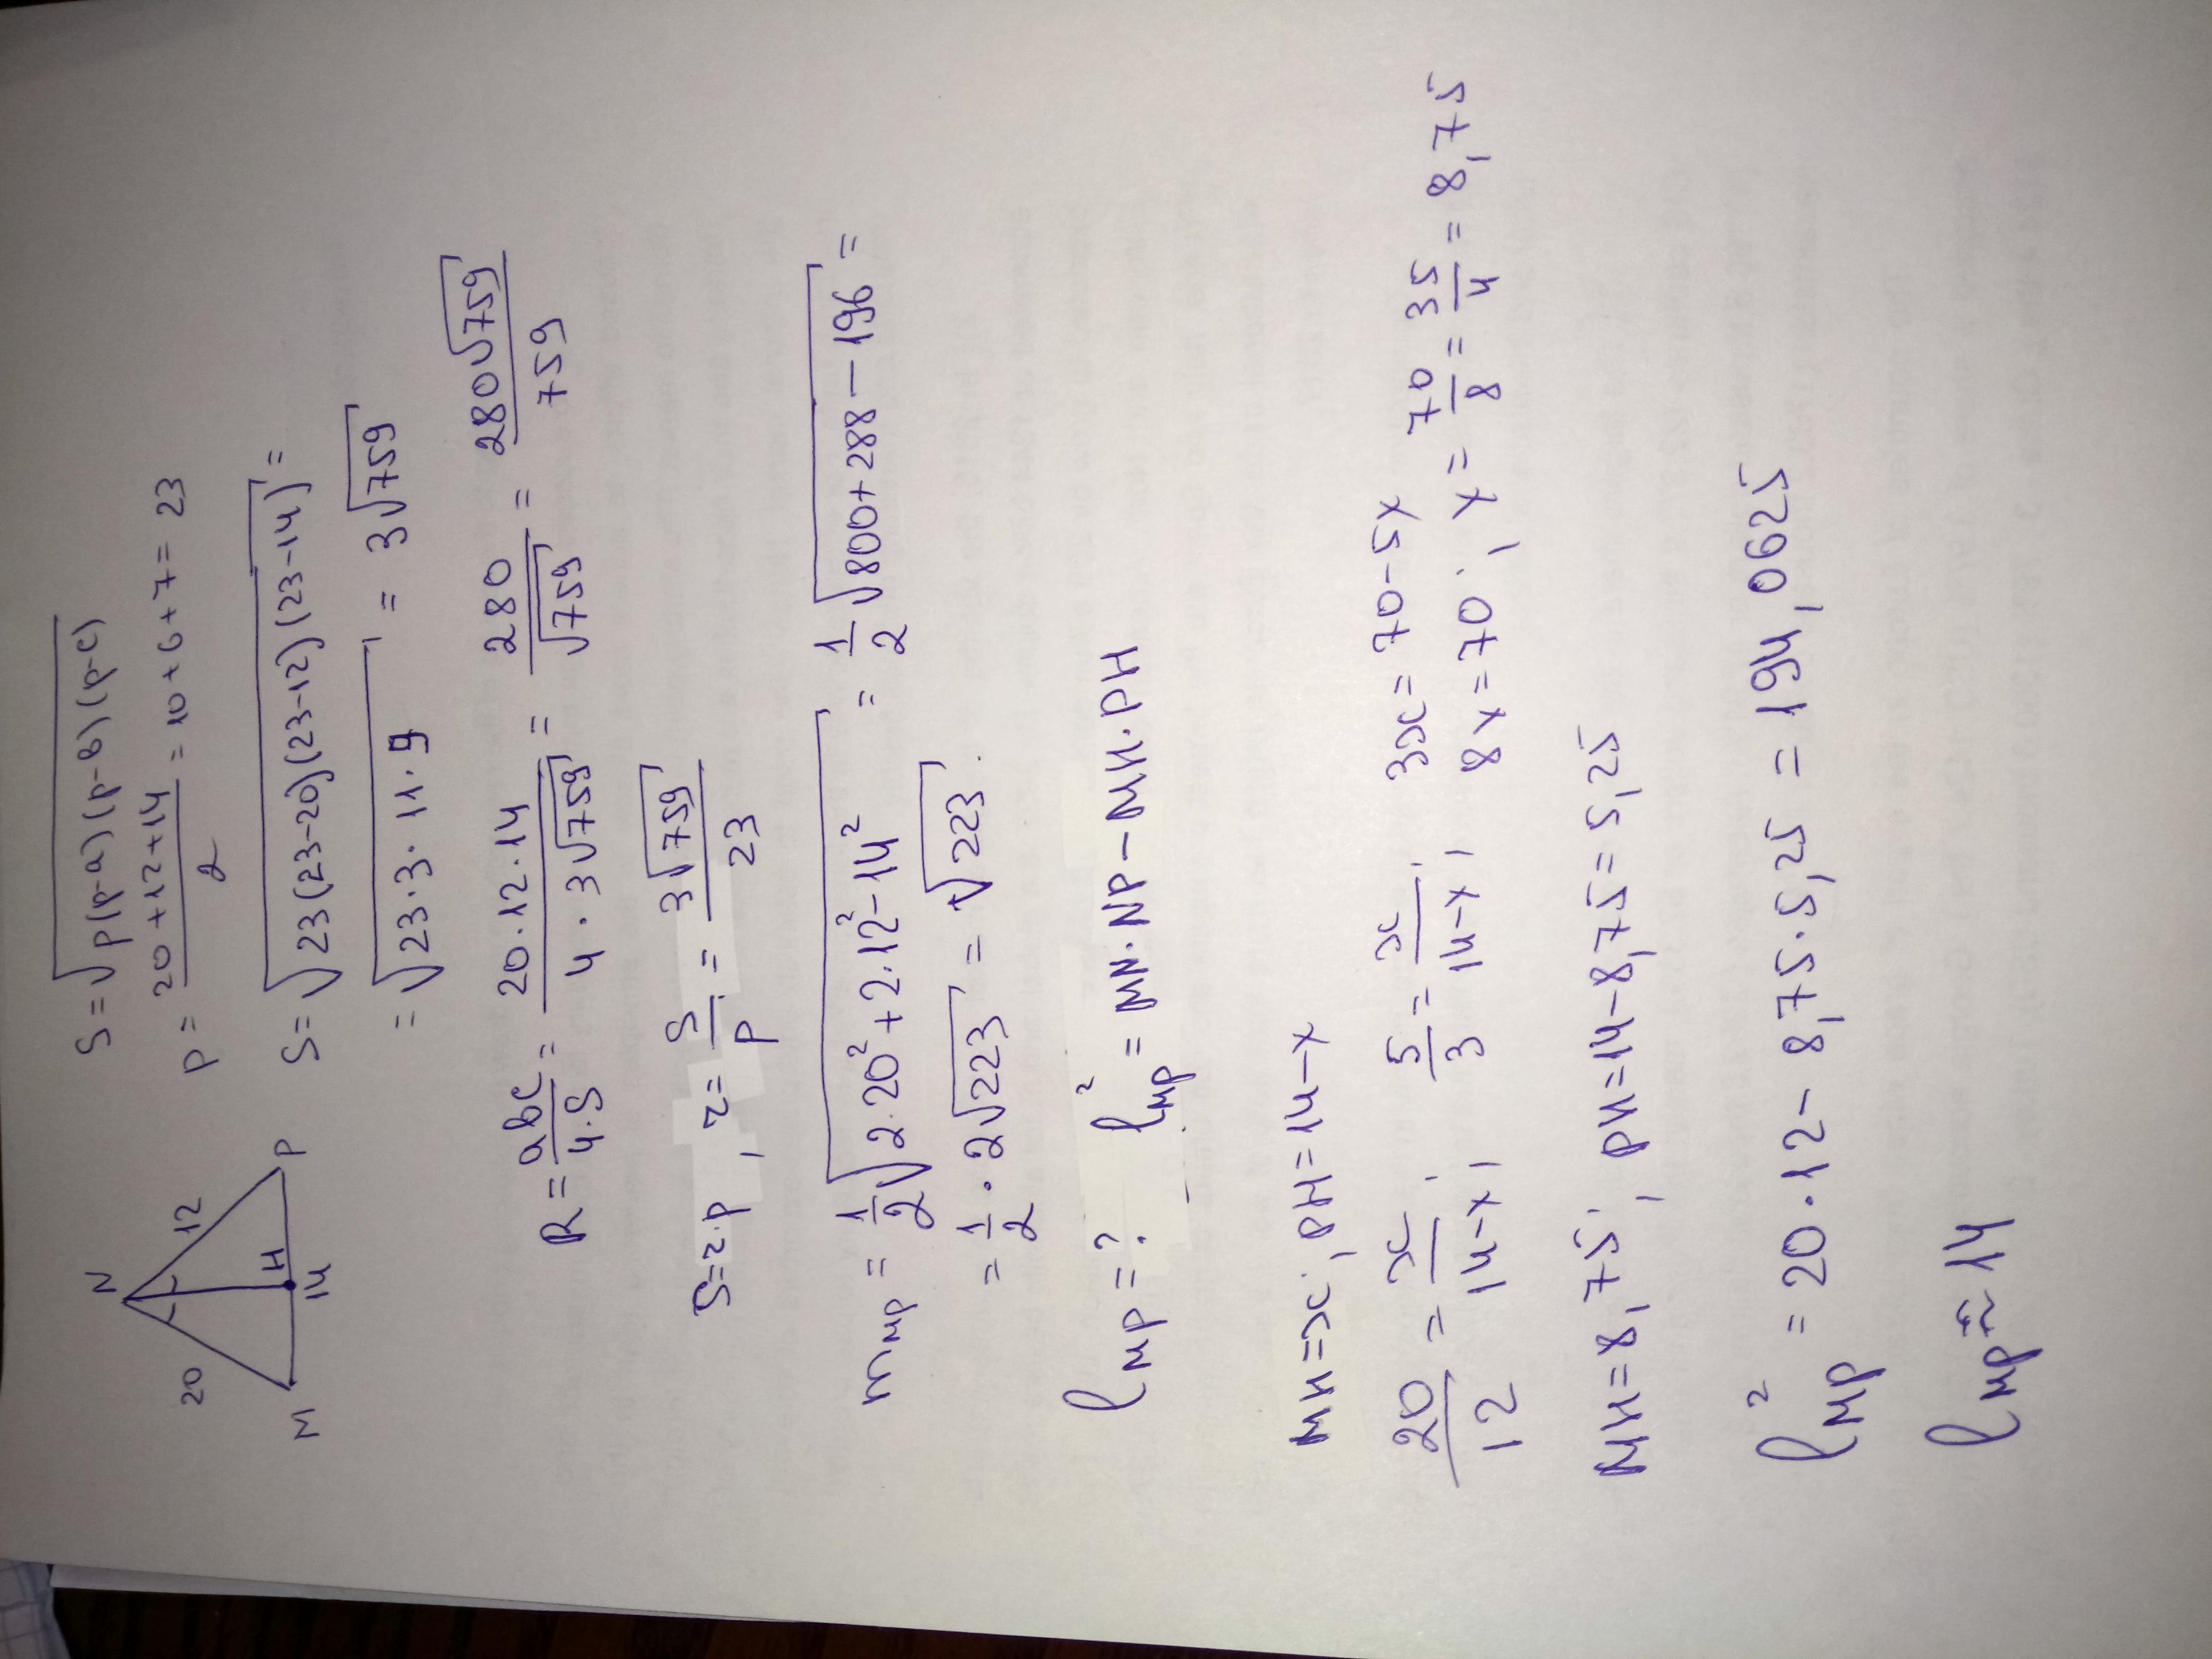 N
20
12
H
M
14
P
S = √p(p-a)(p-b)(p-c)
p = (20+12+14)/2 = 10+6+7 = 23
S = √23(23-20)(23-12)(23-14) =
= √23·3·11·9 = 3√759
R = abc/4·S = 20·12·14/4·3√759 = 280/√759 = 280√759/759
S=r·p, r = S/p = 3√759/23
m_MP = 1/2 √2·20²+2·12²-14² = 1/2 √800+288-196 =
= 1/2 · 2√223 = √223.
l_MP = ? l²_MP = MN·NP-MH·PH
MH=x; PH=14-x
20/12 = x/14-x; 5/3 = x/14-x; 3x = 70-5x
8x=70; x = 70/8 = 35/4 = 8,75
MH=8,75; PH=14-8,75=5,25
l²_MP = 20·12- 8,75·5,25 = 194,0625
l_MP ≈ 14